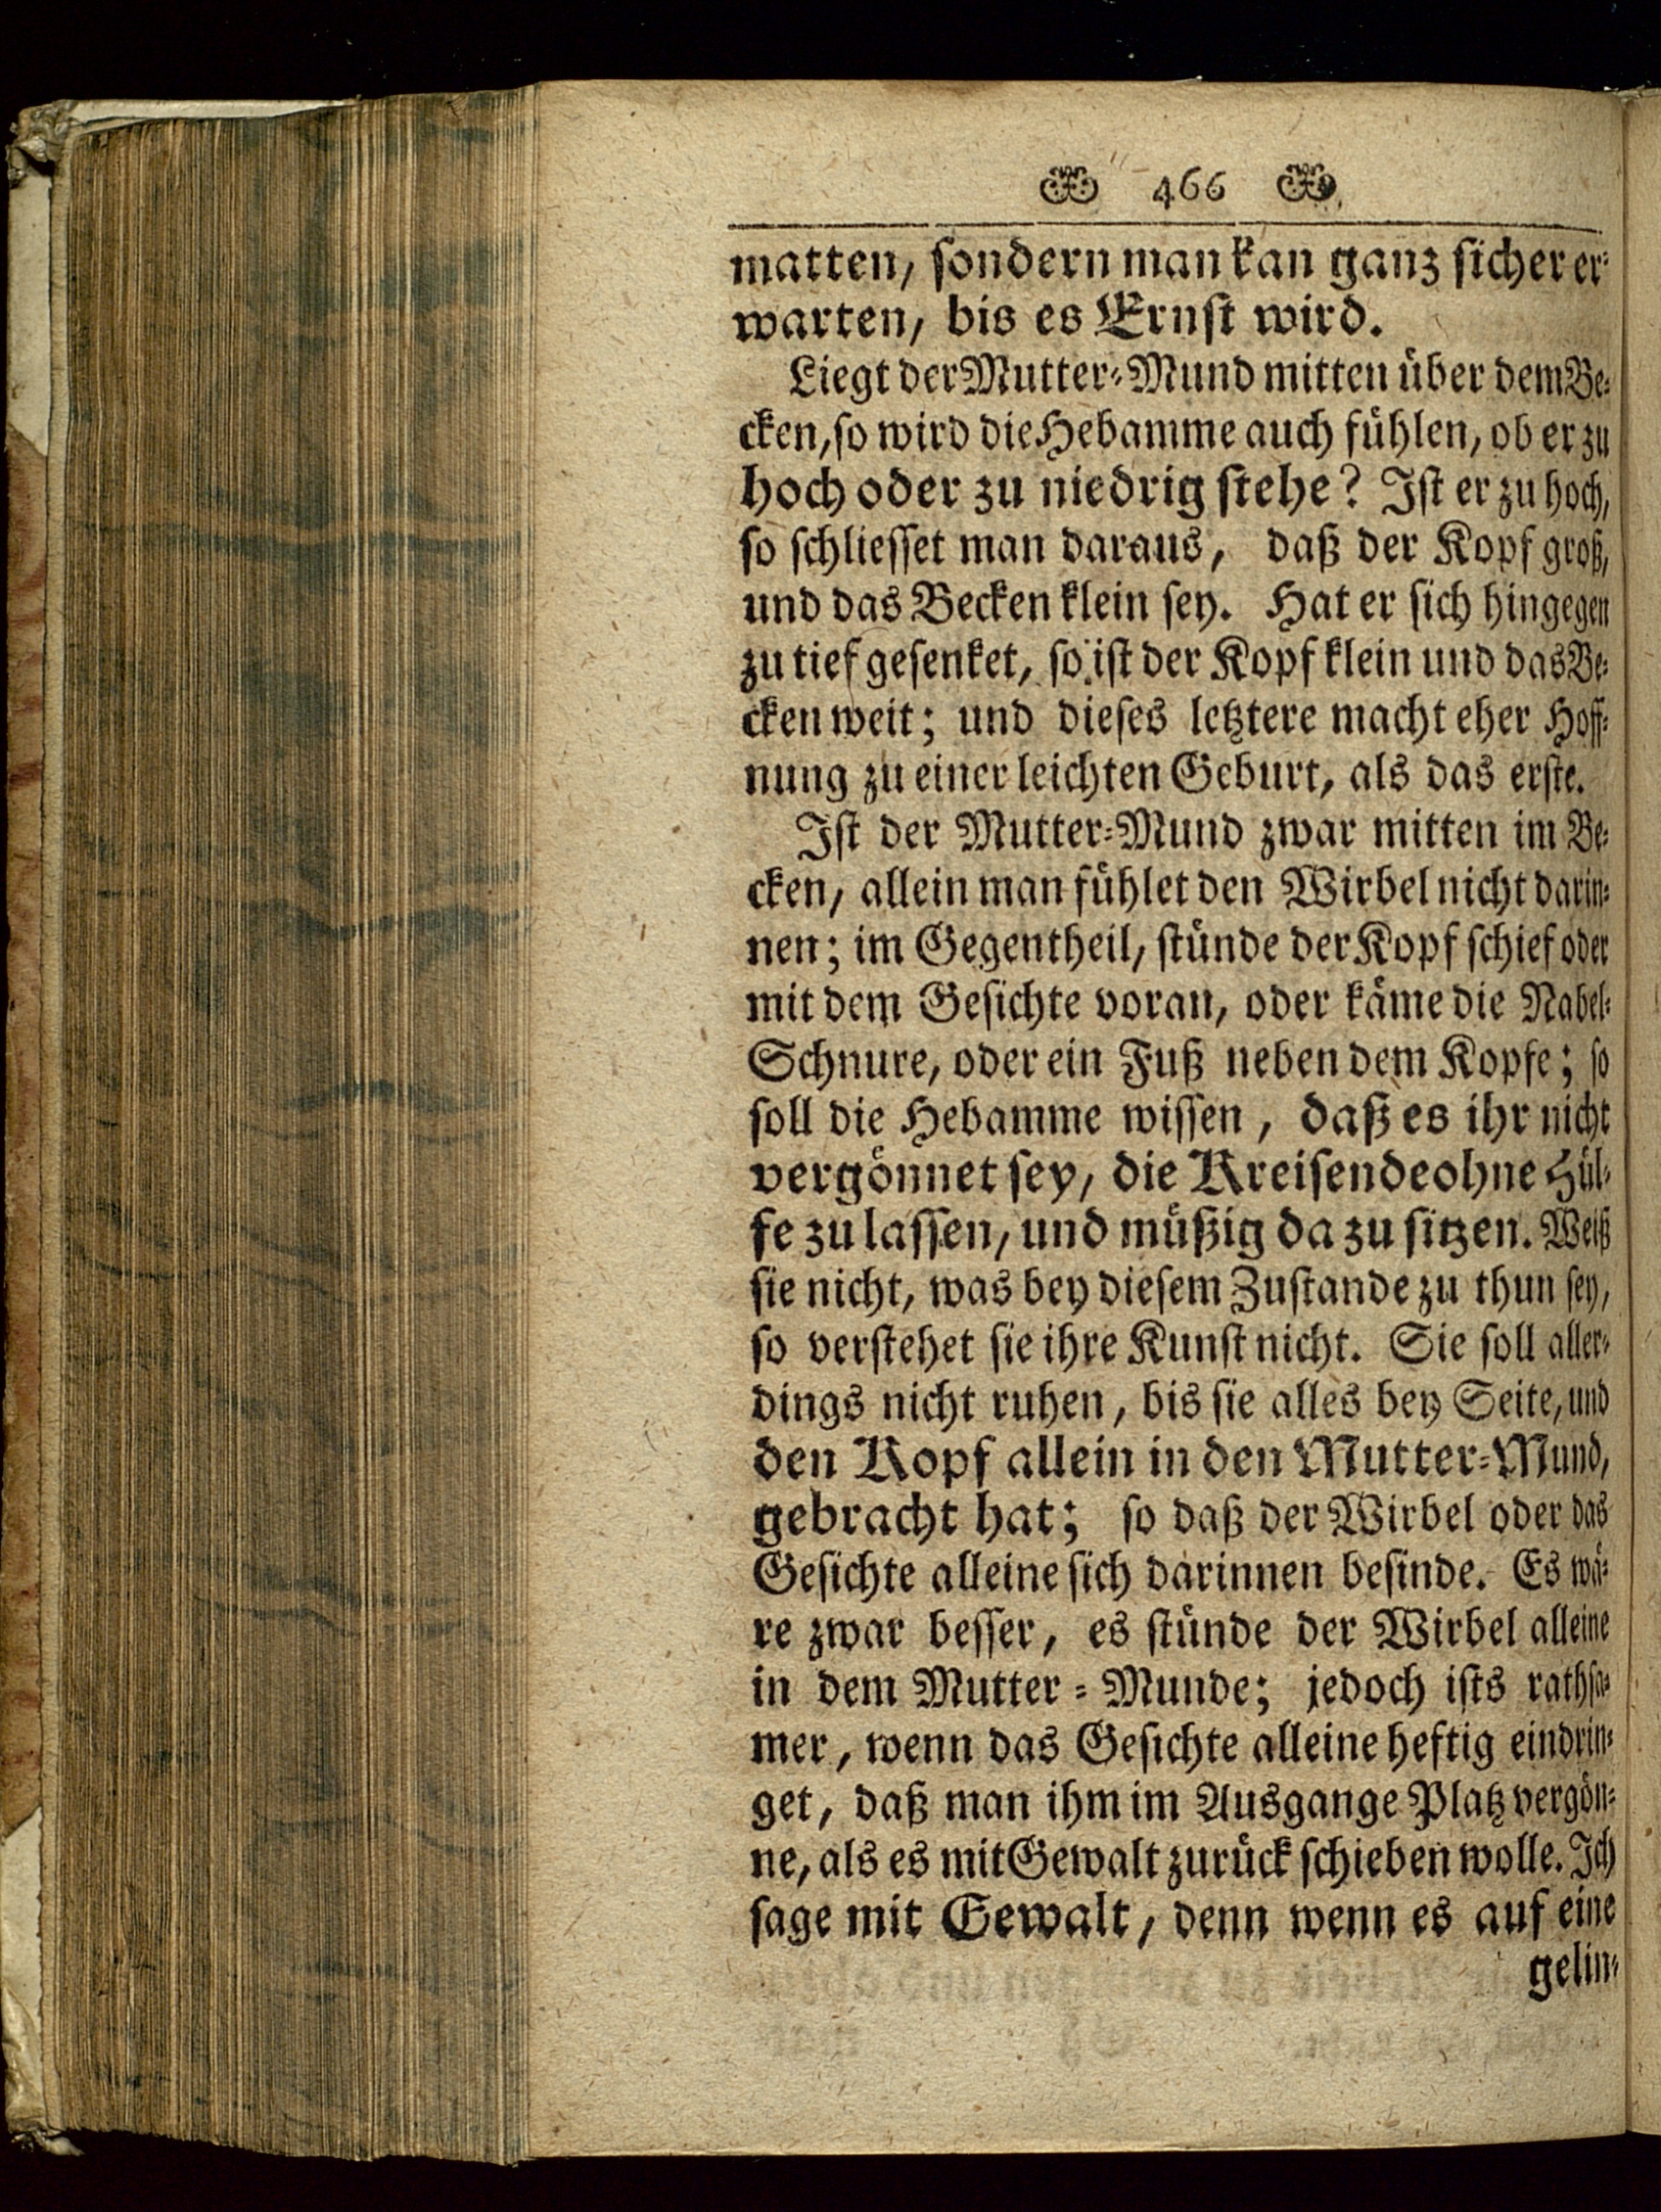 466
matten, sondern man kan ganz sicher er-
warten, bis es Ernst wird.
Liegt der Mutter-Mund mitten über dem Be-
cken, so wird die Hebamme auch fühlen, ob er zu
hoch oder zu niedrig stehe? Ist er zu hoch,
so schliesset man daraus, daß der Kopf groß,
und das Becken klein sey. Hat er sich hingegen
zu tief gesenket, so ist der Kopf klein und das Be-
cken weit; und dieses letztere macht eher Hoff-
nung zu einer leichten Geburt, als das erste.
Ist der Mutter-Mund zwar mitten im Be-
cken, allein man fühlet den Wirbel nicht darin-
nen; im Gegentheil, stünde der Kopf schief oder
mit dem Gesichte voran, oder käme die Nabel-
Schnure, oder ein Fuß neben dem Kopfe; so
soll die Hebamme wissen, daß es ihr nicht
vergönnet sey, die Kreisende ohne Hül-
fe zu lassen, und müßig da zu sitzen. Weiß
sie nicht, was bey diesem Zustande zu thun sey,
so verstehet sie ihre Kunst nicht. Sie soll aller-
dings nicht ruhen, bis sie alles bey Seite, und
den Kopf allein in den Mutter-Mund,
gebracht hat; so daß der Wirbel oder das
Gesichte alleine sich darinnen befinde. Es wä-
re zwar besser, es stünde der Wirbel alleine
in dem Mutter-Munde; jedoch ists rathsa-
mer, wenn das Gesichte alleine heftig eindrin-
get, daß man ihm im Ausgange Platz vergön-
ne, als es mit Gewalt zurück schieben wolle. Ich
sage mit Gewalt, denn wenn es auf eine
gelin-